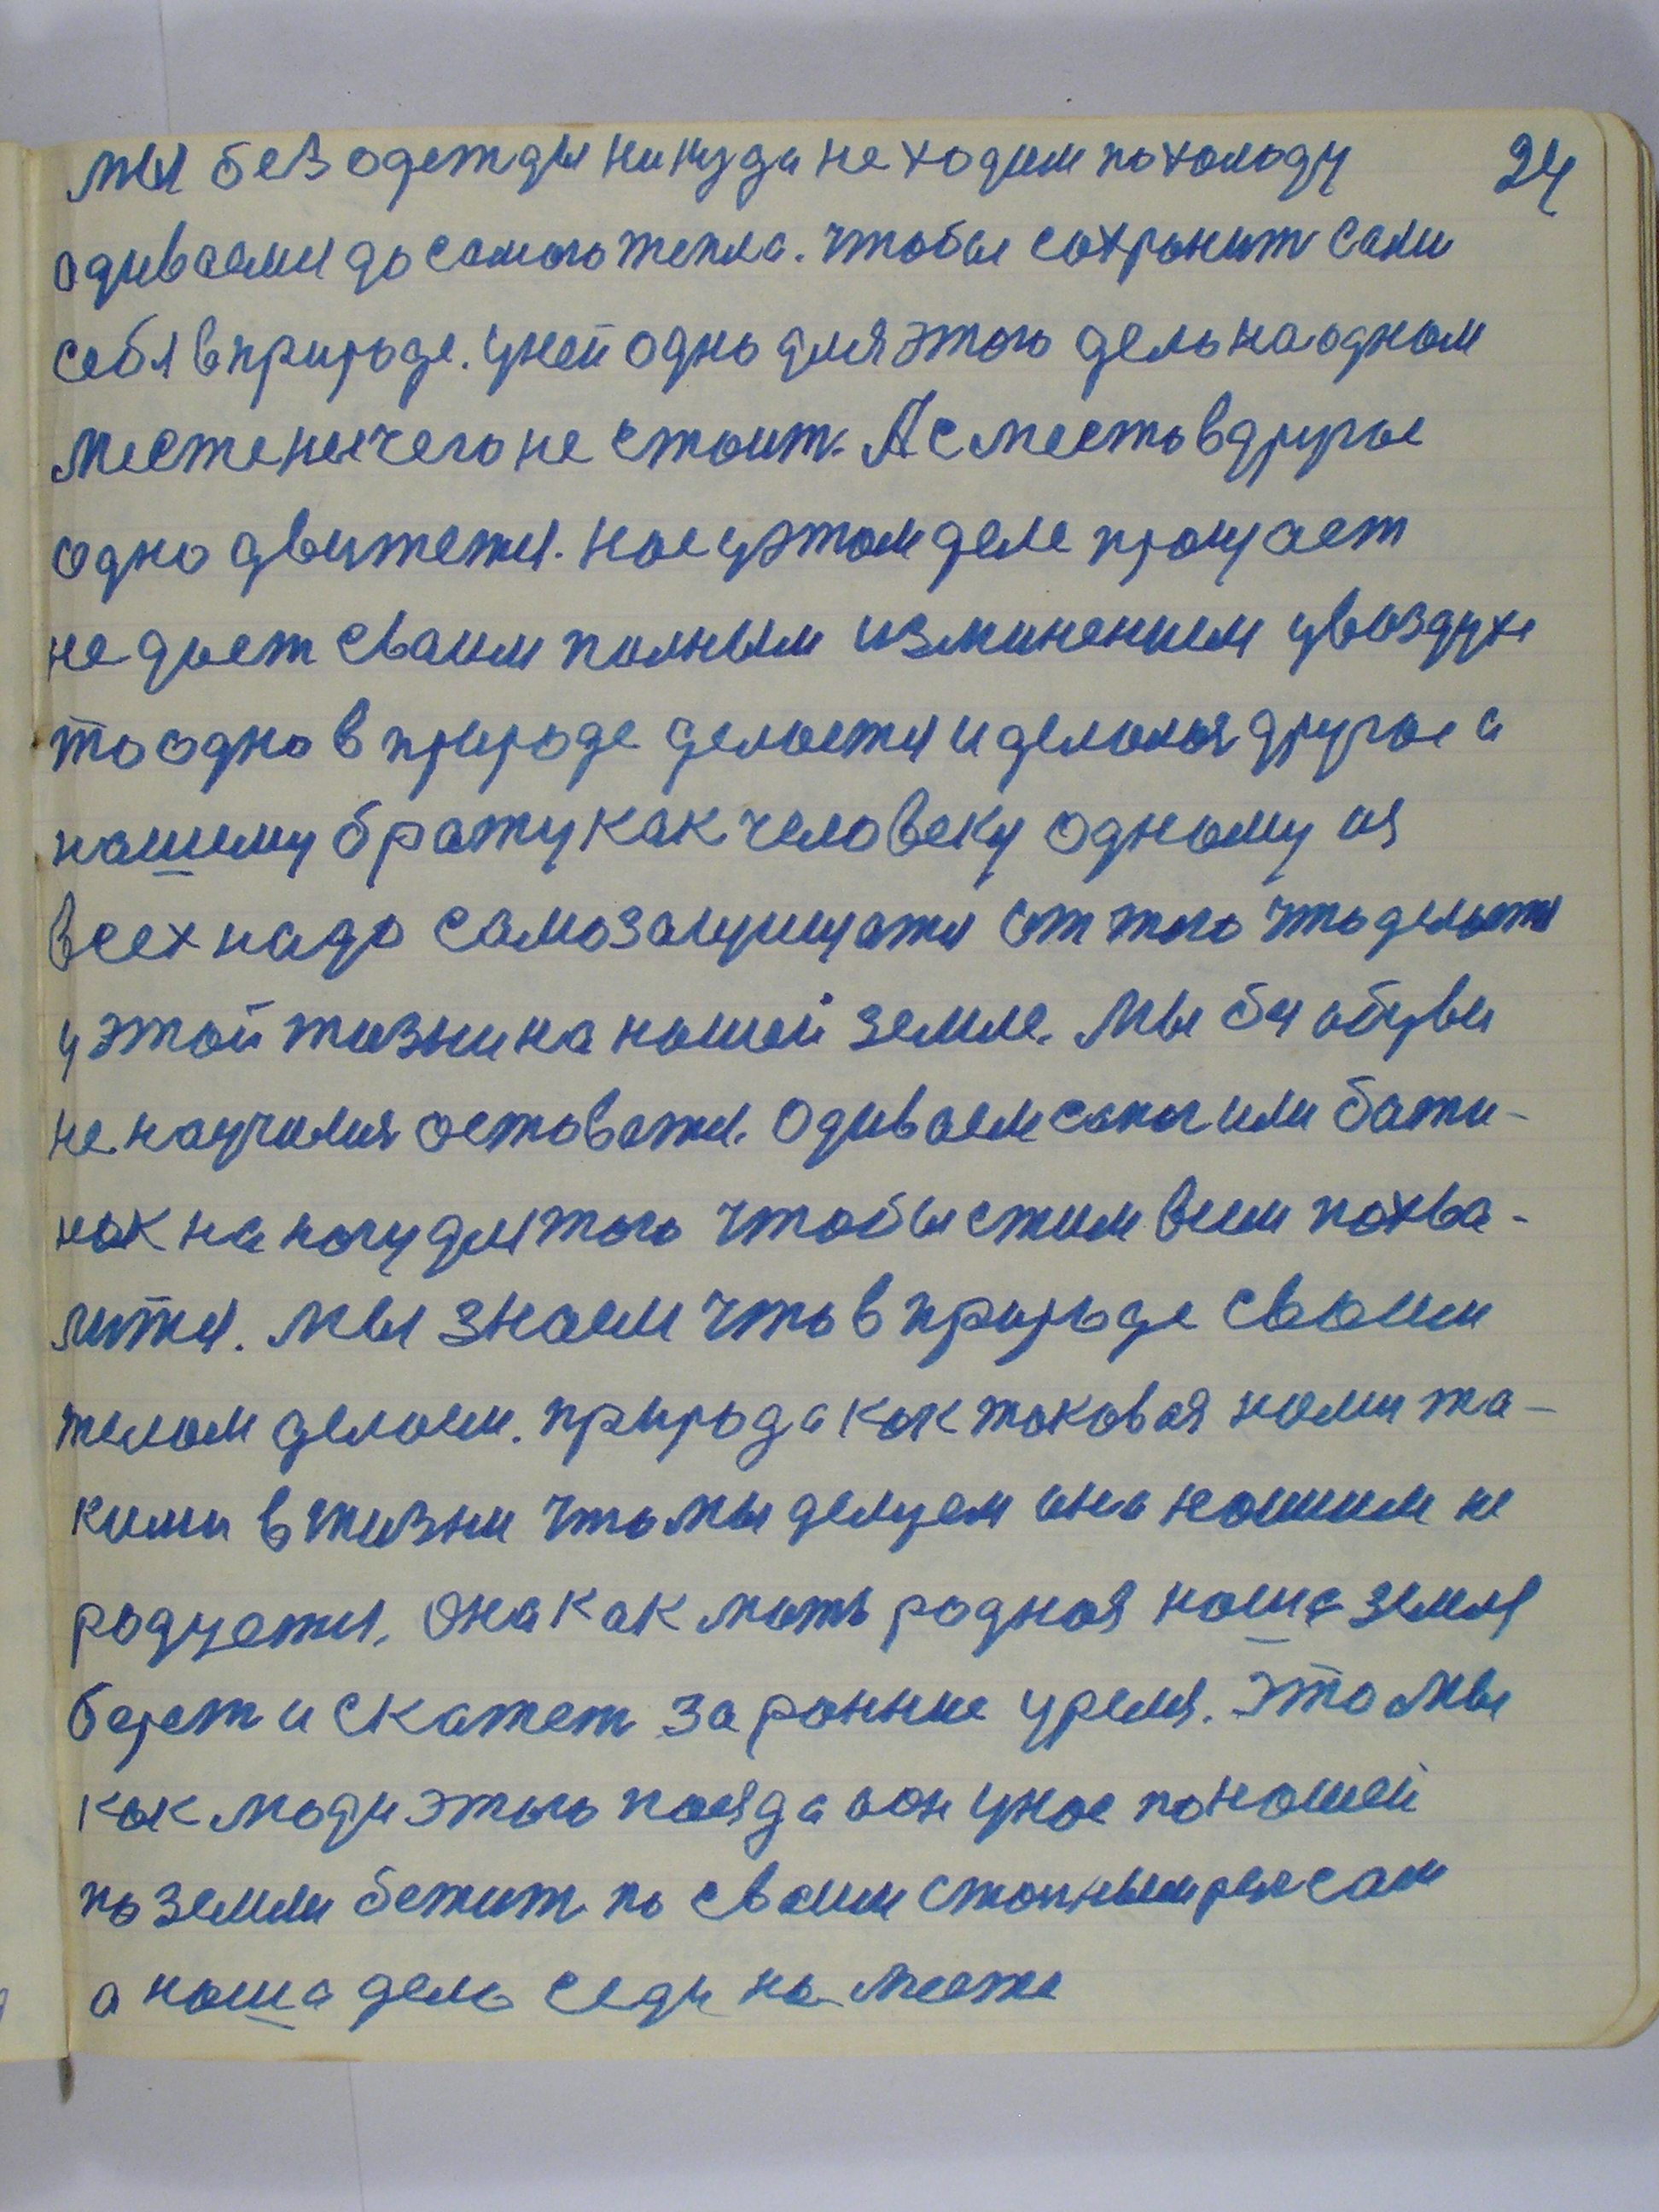 мы без одежды никуда не ходим по холоду 24
одиваемся до самого тепла. чтобы сохранит сами
себя в природе. у ней одно для этого дело на одном
месте ничего не стоит. А с место в другое
одно движетеся. нас у этом деле прощает
не дает сваим полным изминением у воздухе
то одно в природе делается и делался другое а
нашиму брату как человеку одному из
всех надо самозащищатся от того что делается
у этой жизни на нашей земле. Мы без обуви
не научился оставатся. Одиваем сапог или бати-
нок на ногу для того чтобы етим всим похва-
лится. мы знаем что в природе сваим
телом делаем. природа как таковая нами та-
кими в жизни что мы делуем она нашим не
радуется. Она как мать родная наша земля
берет и скажет за ранние уремя. Это мы
как люди этого поезда он у нас по нашей
по земли бежит по сваим стальным рельсам
а наша дело седи на месте